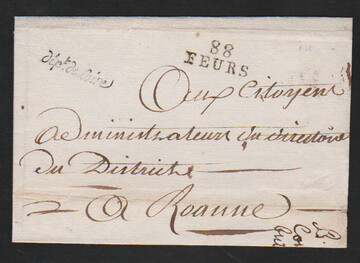 dép.t de loire
88
FEURS
Aux Citoyens
administrateurs du directoire
du District
A Roanne